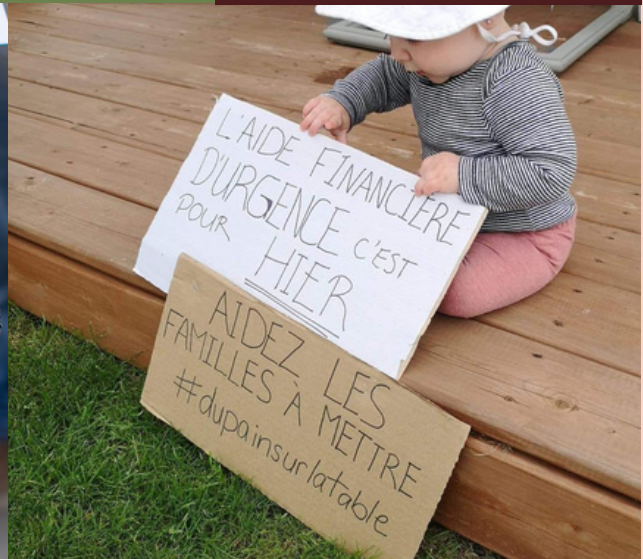 L'AIDE FINANCIÈRE
D'URGENCE C'EST
POUR HIER
AIDEZ LES
FAMILLES À METTRE
#dupainsurlatable